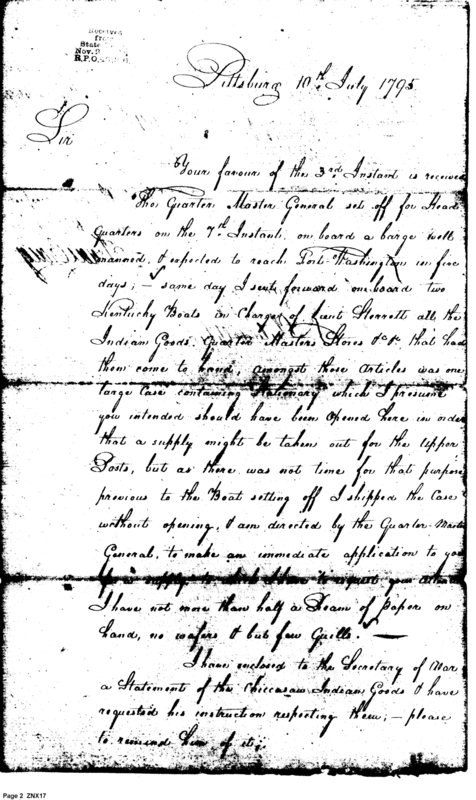 Received
from
State
Nov. 9
R.P.O.
Pittsburg 10th July 1795
Sir
Your favour of the 3rd Instant is received
The Quarter Master General set off for Head
Quarters on the 7th Instant, on board a barge well
manned, & expected to reach Fort Washington in five
days; — same day I sent forward on board two
Kentucky Boats in Charge of Lieut Sterrett all the
Indian Goods, Quarter Masters Stores &c &c that had
then come to hand, amongst those Articles was one
large Case containing Stationary which I presume
you intended should have been opened here in order
that a supply might be taken out for the Upper
Posts, but as there was not time for that purpose
previous to the Boat setting off I shipped the Case
without opening, & am directed by the Quarter-Master
General, to make an immediate application to you
for a supply to which I have to request your
I have not more than half a Ream of Paper on
hand, no wafers & but few Quills. —
I have enclosed to the Secretary of War
a Statement of the Chiccasaw Indian Goods & have
requested his instruction respecting them; — please
to remind him of it;
Page 2 ZNX17